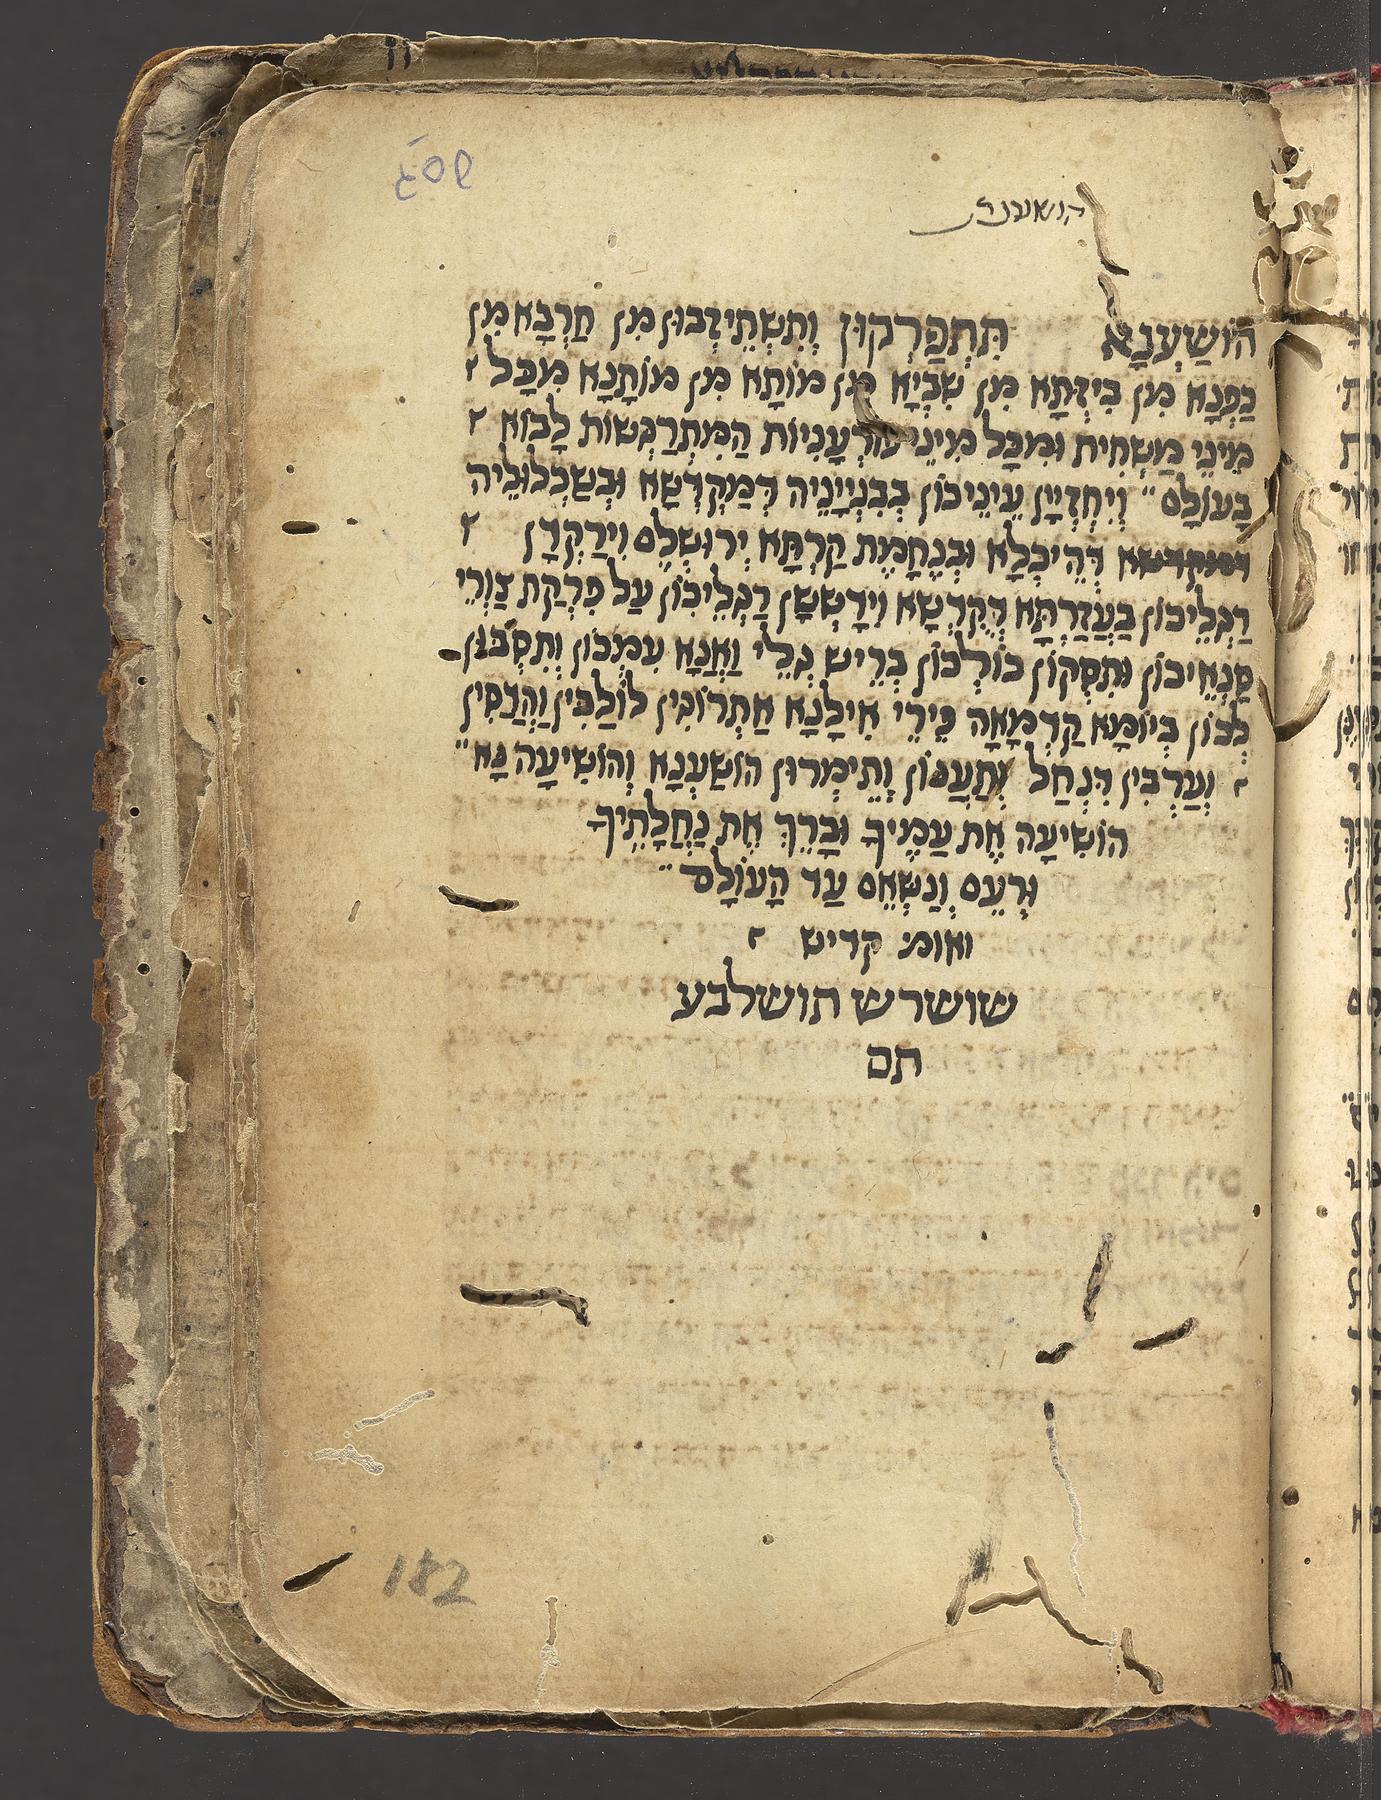 הושענא
הוֹשַׁעְנָא תִּתְפַּרְקוּן וְתִשְׁתֵּיזְבוּן מִן חַרְבָּא מִן
כַּפְנָא מִן בִּיזְּתָא מִן שִׁבְיָא מִן מוֹתָא מִן מוֹתָנָא מִכָּל
מִינֵי מַשְׁחִית וּמִכָּל מִינֵי פורְעָנִיוֹת הַמִּתְרַגְּשׁוֹת לָבוֹא
בָּעוֹלָם וְיִחְזְיָין עֵינֵיכוֹן בְּבִנְיָינֵיה דְּמַקְדְּשָׁא וּבְשַׁכְלוּלֵיה
דמקדשא דְּהֵיכְלָא וּבְנֶחָמַת קַרְתָּא יְרוּשְׁלֵם וִירַקְדָן
רַגְלֵיכוֹן בַּעֲזַרְתָּא דְּקֻדְשָׁא וִידָשְׁשָׁן רַגְלֵיכוֹן עַל פִּרְקַת צַוְרֵי
סַנְאֵיכוֹן וּתִסְקוֹן כּוֹלְכוֹן בְּרֵישׁ גְּלֵי וַאֲנָא עִמְּכוֹן וְתִסְּבוּן
לְכוֹן בְּיוֹמָא קַדְמָאָה פֵּירֵי אִילָנָא אֶתְרוֹגִין לוּלַבִּין וַהֲדַסִין
וְעַרְבִין דִּנְחַל וְתַעֲנוֹן וְתֵימְרוּן הוֹשַׁעְנָא וְהוֹשִׁיעָה נָּא
הוֹשִׁיעָה אֶת עַמֶּיךָ וּבָרֵךְ אֶת נַחֲלָתֶיךָ
וּרְעֵם וְנַשְּׂאֵם עַד הָעוֹלָם
ואומ׳ קדיש
שושרש תושלבע
תם
182